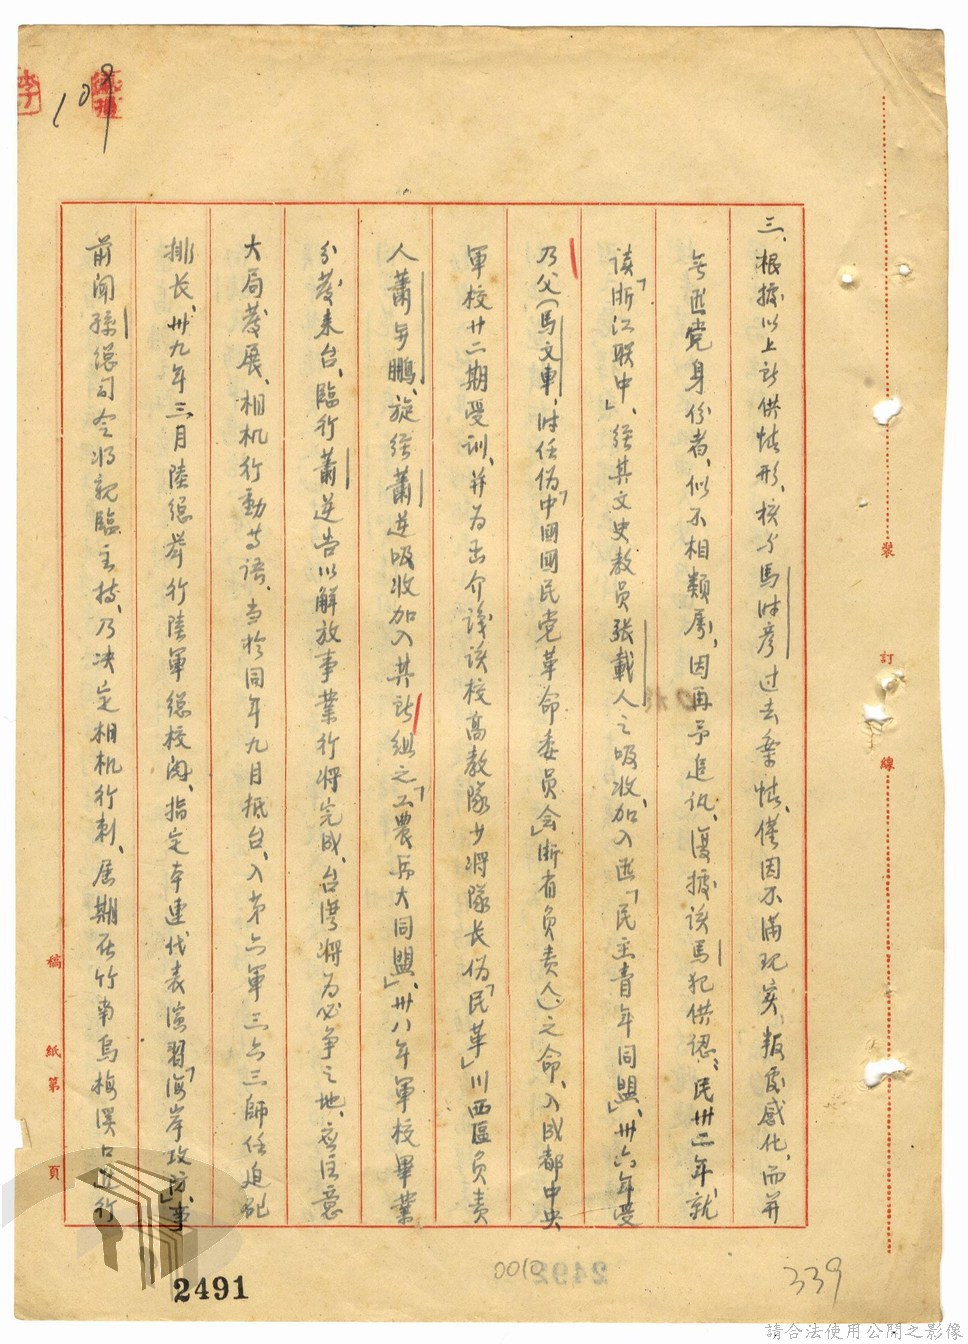 109
三、根據以上所供情形、核与馬時彥过去案情、僅因不滿现实、叛處感化、而并
無匪党身份者、似不相類屬、因再予追訊、復據该馬犯供認：民卅二年就
读「浙江联中」、经其文史教员張載人之吸收、加入匪「民主青年同盟」、卅六年受
乃父（馬文車、時任伪「中國國民党革命委員会」浙省负责人）之命、入成都中央
軍校廿二期受训、并为其介識该校高教隊少將隊长伪「民革」川西區负责
人蕭步鵬、旋经蕭逆吸收加入其所組之「工農兵大同盟」、卅八年軍校畢業
分發来台、臨行蕭逆告以解放事業行将完成、台湾将为必争之地、应注意
大局發展、相机行動等語、当於同年九月抵台、入第六軍三六三師任迫砲
排长、卅九年三月陸總举行陸軍總校阅、指定本連代表演習「海岸攻防」事
前闻孫總司令将親臨主持、乃决定相机行刺、届期在竹南烏梅溪口進行
裝
訂
線
稿
紙
第
頁
2491
0010
339
請合法使用公開之影像